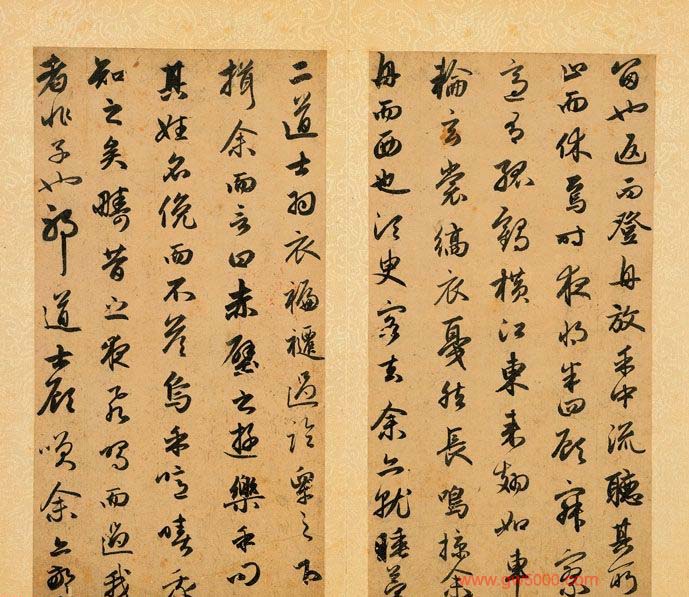 留也返而登舟放乎中流聽其所
止而休焉時夜將半四顧寂寥
適有孤鶴橫江東來翅如車
輪玄裳縞衣戛然長鳴掠余
舟而西也須臾客去余亦就睡夢
二道士羽衣蹁躚過臨皋之下
揖余而言曰赤壁之遊樂乎問
其姓名俛而不答烏乎噫嘻我
知之矣疇昔之夜飛鳴而過我
者非子也耶道士顧笑余亦